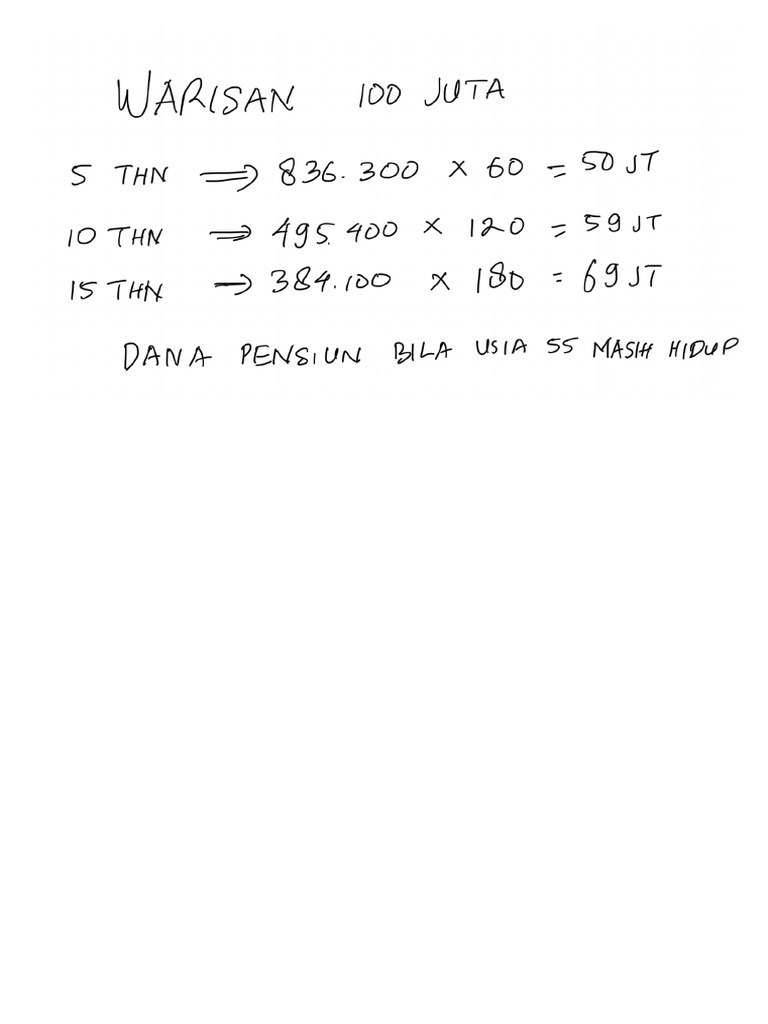 WARISAN 100 JUTA
5 THN ⟹ 836.300 × 60 = 50 JT
10 THN ⟹ 495.400 × 120 = 59 JT
15 THN → 384.100 × 180 = 69 JT
DANA PENSIUN BILA USIA 55 MASIH HIDUP